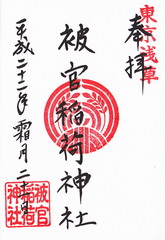 東京浅草
奉拝
被官稲荷神社
平成二十二年霜月二十一日
被官
稲荷
神社